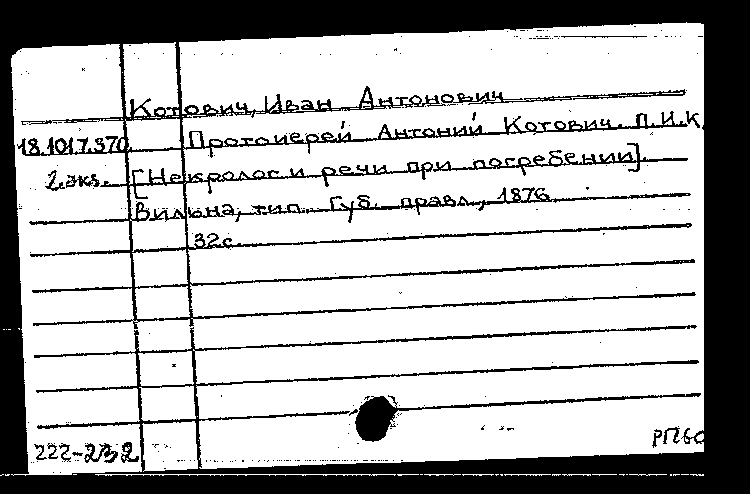 Котович, Иван Антонович
18.101.7.370 Протоиерей Антоний Котович. П.И.К.
2 экз. [Некролог и речи при погребении].
Вильна, тип. Губ. правл., 1876.
32 с.
222-232